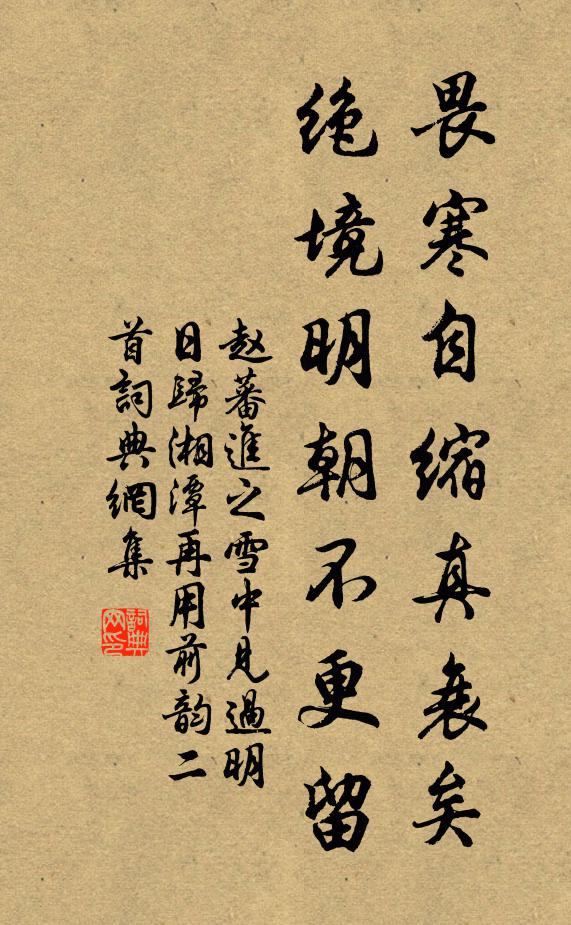 畏寒自縮真衰矣
绝境明朝不更留
赵蕃進之雪中見過明
日歸湘潭再用前韵二
首詞典網集
詞典
网印